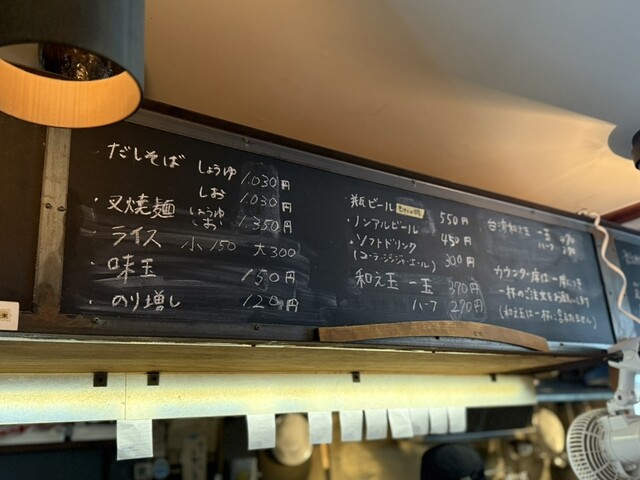 だしそば しょうゆ 1.030円
しお 1.030円
・叉焼麺 しょうゆ しお 1.350円
・ライス 小150 大300
・味玉 150円
・のり増し 120円
・瓶ビール 550円
・ノンアルビール 450円
・ソフトドリンク 300円
(コーラ・ジンジャーエール)
和え玉 一玉 370円
ハーフ 270円
台湾和え玉 一玉
ハーフ
カウンター席は一席につき
一杯のご注文をお願いします
(和え玉は一杯に含みません)